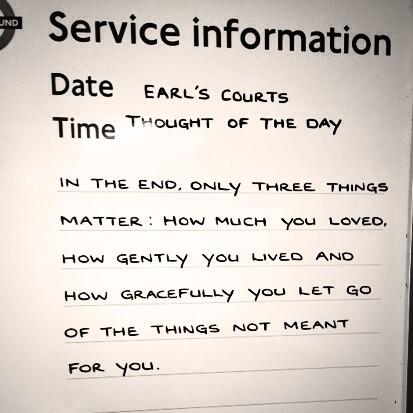 UND
Service information
Date EARL'S COURTS
Time THOUGHT OF THE DAY
IN THE END, ONLY THREE THINGS
MATTER: HOW MUCH YOU LOVED,
HOW GENTLY YOU LIVED AND
HOW GRACEFULLY YOU LET GO
OF THE THINGS NOT MEANT
FOR YOU.